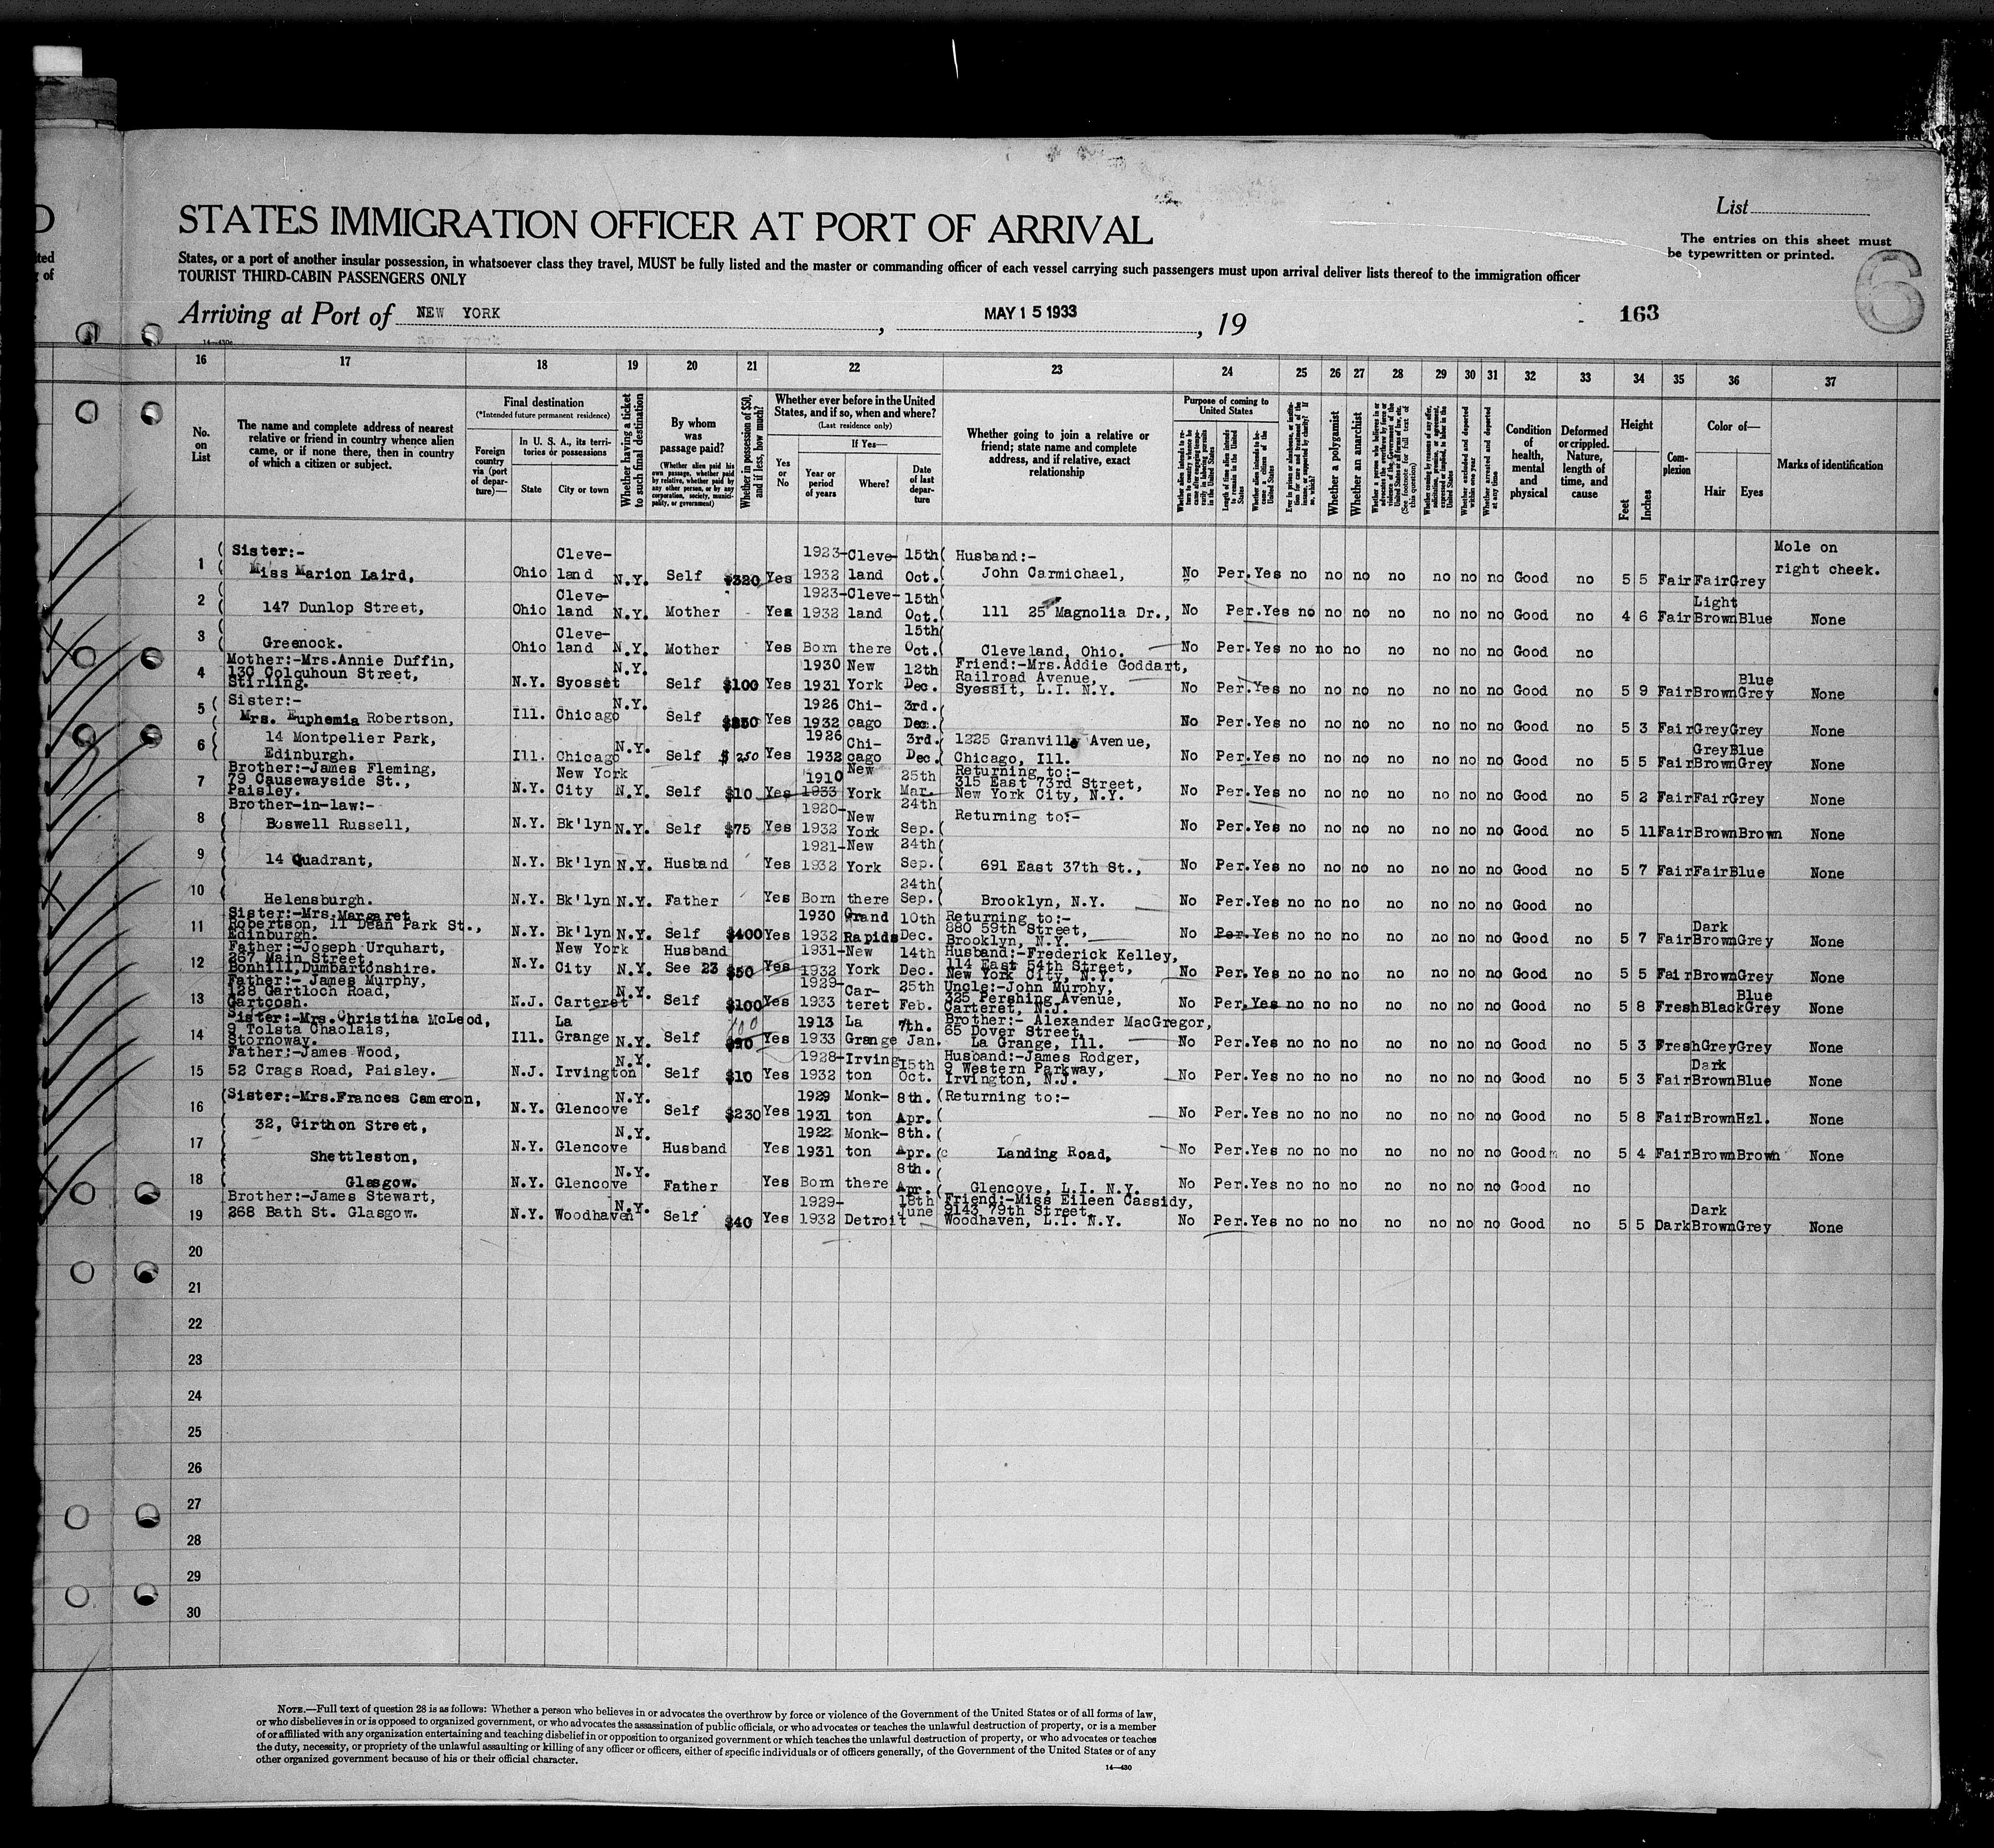 D
ted
of
STATES IMMIGRATION OFFICER AT PORT OF ARRIVAL
List
The entries on this sheet must
be typewritten or printed.
6
States, or a port of another insular possession, in whatsoever class they travel, MUST be fully listed and the master or commanding officer of each vessel carrying such passengers must upon arrival deliver lists thereof to the immigration officer
TOURIST THIRD-CABIN PASSENGERS ONLY
Arriving at Port of NEW YORK, MAY 15 1933, 19
163
16 17 18 19 20 21 22 23 24 25 26 27 28 29 30 31 32 33 34 35 36 37
No. on List
The name and complete address of nearest relative or friend in country whence alien came, or if none there, then in country of which a citizen or subject.
Final destination
(*Intended future permanent residence)
Foreign country via (port of departure)—
In U. S. A., its territories or possessions
State
City or town
Whether having a ticket to such final destination
By whom was passage paid?
(Whether alien paid his own passage, whether paid by relative, whether paid by any other person, or by any corporation, society, municipality, or government)
Whether in possession of $50, and if less, how much?
Whether ever before in the United States, and if so, when and where?
(Last residence only)
Yes or No
If Yes—
Year or period of years
Where?
Date of last departure
Whether going to join a relative or friend; state name and complete address, and if relative, exact relationship
Purpose of coming to United States
Length of time alien intends to remain in the United States
Whether alien intends to become a citizen of the United States
Whether a polygamist
Whether an anarchist
(See footnote for full text of this question)
Whether excluded and deported within one year
Whether arrested and deported at any time
Condition of health, mental and physical
Deformed or crippled. Nature, length of time, and cause
Height
Feet
Inches
Complexion
Color of—
Hair
Eyes
Marks of identification
1 Sister:- Miss Marion Laird, Ohio Cleve-land N.Y. Self $320 Yes 1923-1932 Cleve-land 15th Oct. Husband:- John Carmichael, No Per. Yes no no no no no no no Good no 5 5 Fair Fair Grey Mole on right cheek.
2 147 Dunlop Street, Ohio Cleve-land N.Y. Mother Yes 1923-1932 Cleve-land 15th Oct. 111 25 Magnolia Dr., No Per. Yes no no no no no no no Good no 4 6 Fair Light Brown Blue None
3 Greenock. Ohio Cleve-land N.Y. Mother Yes Born there 15th Oct. Cleveland, Ohio. No Per. Yes no no no no no no no Good no
4 Mother:-Mrs.Annie Duffin, 130 Colquhoun Street, Stirling. N.Y. Syosset N.Y. Self $100 Yes 1930 1931 New York 12th Dec. Friend:-Mrs.Addie Goddart, Railroad Avenue, Syossit, L.I. N.Y. No Per. Yes no no no no no no no Good no 5 9 Fair Brown Blue Grey None
5 Sister:- Mrs. Euphemia Robertson, Ill. Chicago N.Y. Self $250 Yes 1926 1932 Chi-cago 3rd. Dec. No Per. Yes no no no no no no no Good no 5 3 Fair Grey Grey None
6 14 Montpelier Park, Edinburgh. Ill. Chicago N.Y. Self $ 250 Yes 1926 1932 Chi-cago 3rd. Dec. 1225 Granville Avenue, Chicago, Ill. No Per. Yes no no no no no no no Good no 5 5 Fair Grey Brown Blue Grey None
7 Brother:-James Fleming, 79 Causewayside St., Paisley. N.Y. New York City N.Y. Self $10 Yes 1910 1933 New York 25th Mar. Returning to:- 315 East 73rd Street, New York City, N.Y. No Per. Yes no no no no no no no Good no 5 2 Fair Fair Grey None
8 Brother-in-law:- Boswell Russell, N.Y. Bk'lyn N.Y. Self $75 Yes 1920-1932 New York 24th Sep. Returning to:- No Per. Yes no no no no no no no Good no 5 11 Fair Brown Brown None
9 14 Quadrant, N.Y. Bk'lyn N.Y. Husband Yes 1921-1932 New York 24th Sep. 691 East 37th St., No Per. Yes no no no no no no no Good no 5 7 Fair Fair Blue None
10 Helensburgh. N.Y. Bk'lyn N.Y. Father Yes Born there 24th Sep. Brooklyn, N.Y. No Per. Yes no no no no no no no Good no
11 Sister:-Mrs.Margaret Robertson, 11 Dean Park St., Edinburgh. N.Y. Bk'lyn N.Y. Self $400 Yes 1930 1932 Grand Rapids 10th Dec. Returning to:- 880 59th Street, Brooklyn, N.Y. No Per. Yes no no no no no no no Good no 5 7 Fair Dark Brown Grey None
12 Father:-Joseph Urquhart, 267 Main Street, Bonhill,Dumbartonshire. N.Y. New York City N.Y. Husband See 23 $50 Yes 1931-1932 New York 14th Dec. Husband:-Frederick Kelley, 114 East 54th Street, New York City, N.Y. No Per. Yes no no no no no no no Good no 5 5 Fair Brown Grey None
13 Father:- James Murphy, 128 Gartloch Road, Gartcosh. N.J. Carteret N.Y. Self $100 Yes 1929-1933 Car-teret 25th Feb. Uncle:-John Murphy, 325 Pershing Avenue, Carteret, N.J. No Per. Yes no no no no no no no Good no 5 8 Fresh Black Blue Grey None
14 Sister:-Mrs.Christina McLeod, 9 Tolsta Chaolais, Stornoway. Ill. La Grange N.Y. Self 100 Yes 1913 1933 La Grange 7th. Jan. Brother:- Alexander MacGregor, 65 Dover Street, La Grange, Ill. No Per. Yes no no no no no no no Good no 5 3 Fresh Grey Grey None
15 Father:-James Wood, 52 Crags Road, Paisley. N.J. Irvington N.Y. Self $10 Yes 1928-1932 Irving ton 15th Oct. Husband:-James Rodger, 9 Western Parkway, Irvington, N.J. No Per. Yes no no no no no no no Good no 5 3 Fair Dark Brown Blue None
16 Sister:-Mrs.Frances Cameron, N.Y. Glencove N.Y. Self $230 Yes 1929 1931 Monk-ton 8th. Apr. Returning to:- No Per. Yes no no no no no no no Good no 5 8 Fair Brown Hzl. None
17 32, Girthon Street, Shettleston, N.Y. Glencove N.Y. Husband Yes 1922 1931 Monk-ton 8th. Apr. Landing Road, No Per. Yes no no no no no no no Good no 5 4 Fair Brown Brown None
18 Glasgow. N.Y. Glencove N.Y. Father Yes Born there 8th. Apr. Glencove, L.I. N.Y. No Per. Yes no no no no no no no Good no
19 Brother:-James Stewart, 268 Bath St. Glasgow. N.Y. Woodhaven N.Y. Self $40 Yes 1929-1932 Detroit 18th June Friend:-Miss Eileen Cassidy, 9143 79th Street, Woodhaven, L.I. N.Y. No Per. Yes no no no no no no no Good no 5 5 Dark Dark Brown Grey None
20
21
22
23
24
25
26
27
28
29
30
NOTE.—Full text of question 28 is as follows: Whether a person who believes in or advocates the overthrow by force or violence of the Government of the United States or of all forms of law,
or who disbelieves in or is opposed to organized government, or who advocates the assassination of public officials, or who advocates or teaches the unlawful destruction of property, or is a member
of or affiliated with any organization entertaining and teaching disbelief in or opposition to organized government or which teaches the unlawful destruction of property, or who advocates or teaches
the duty, necessity, or propriety of the unlawful assaulting or killing of any officer or officers, either of specific individuals or of officers generally, of the Government of the United States or of any
other organized government because of his or their official character.
14—430